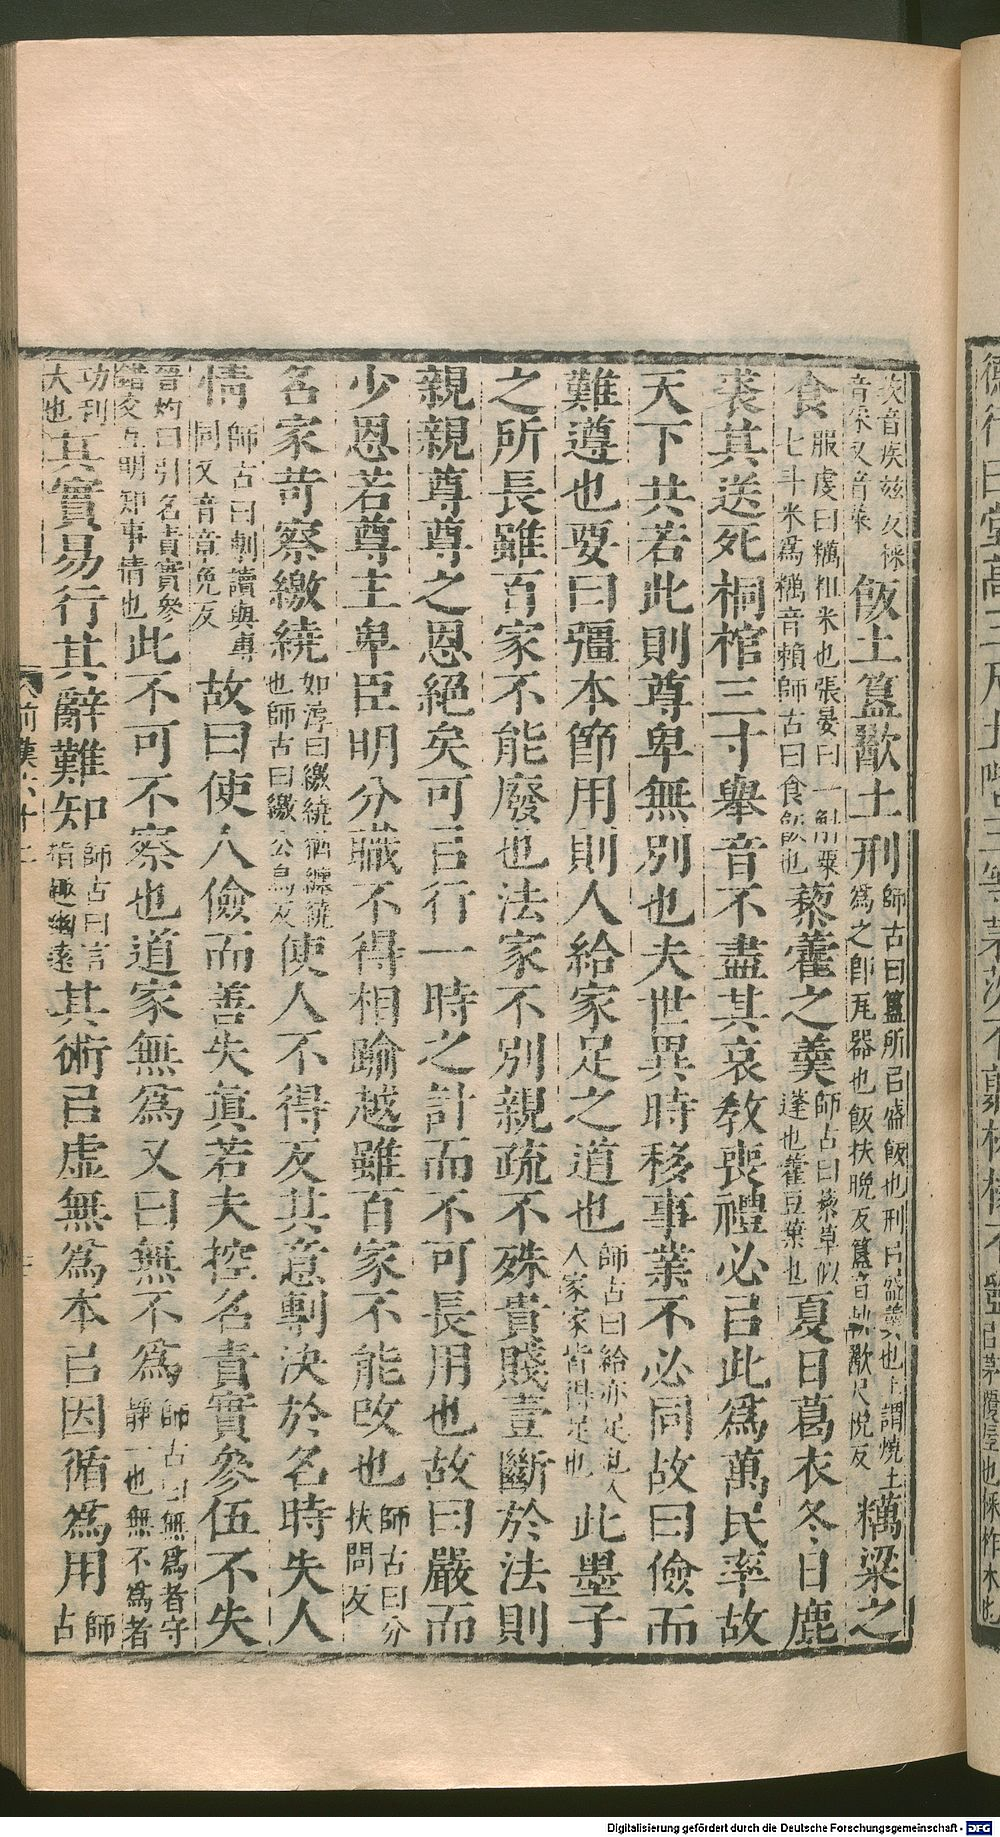 次音疾茲反棌音采又音菜飯土簋歠土刑師古曰簋所㠯盛飯也刑㠯盛羹也土謂燒土爲之即瓦器也飯扶晚反簋音軌歠尺悅反糲粱之
食服虔曰糲粗米也張晏曰一斛粟七斗米爲糲音賴師古曰食飯也藜藿之羹師古曰藜草似蓬也藿豆葉也夏日葛衣冬日鹿
裘其送死桐棺三寸舉音不盡其哀敎喪禮必㠯此爲萬民率故
天下共若此則尊卑無別也夫世異時移事業不必同故曰儉而
難遵也要曰彊本節用則人給家足之道也師古曰給亦足也人人家家皆得足也此墨子
之所長雖百家不能廢也法家不別親疏不殊貴賤壹斷於法則
親親尊尊之恩絕矣可㠯行一時之計而不可長用也故曰嚴而
少恩若尊主卑臣明分職不得相踰越雖百家不能改也師古曰分扶問反
名家苛察繳繞如淳曰繳繞猶纏繞也師古曰繳公鳥反使人不得反其意剸決於名時失人
情師古曰剸讀與專同又音章免反故曰使人儉而善失眞若夫控名責實參伍不失
晉灼曰引名責實參錯交互明知事情也此不可不察也道家無爲又曰無不爲師古曰無爲者守靜一也無不爲者
功利大也其實易行其辭難知師古曰言指趣幽遠其術㠯虛無爲本㠯因循爲用師古
前漢六十二